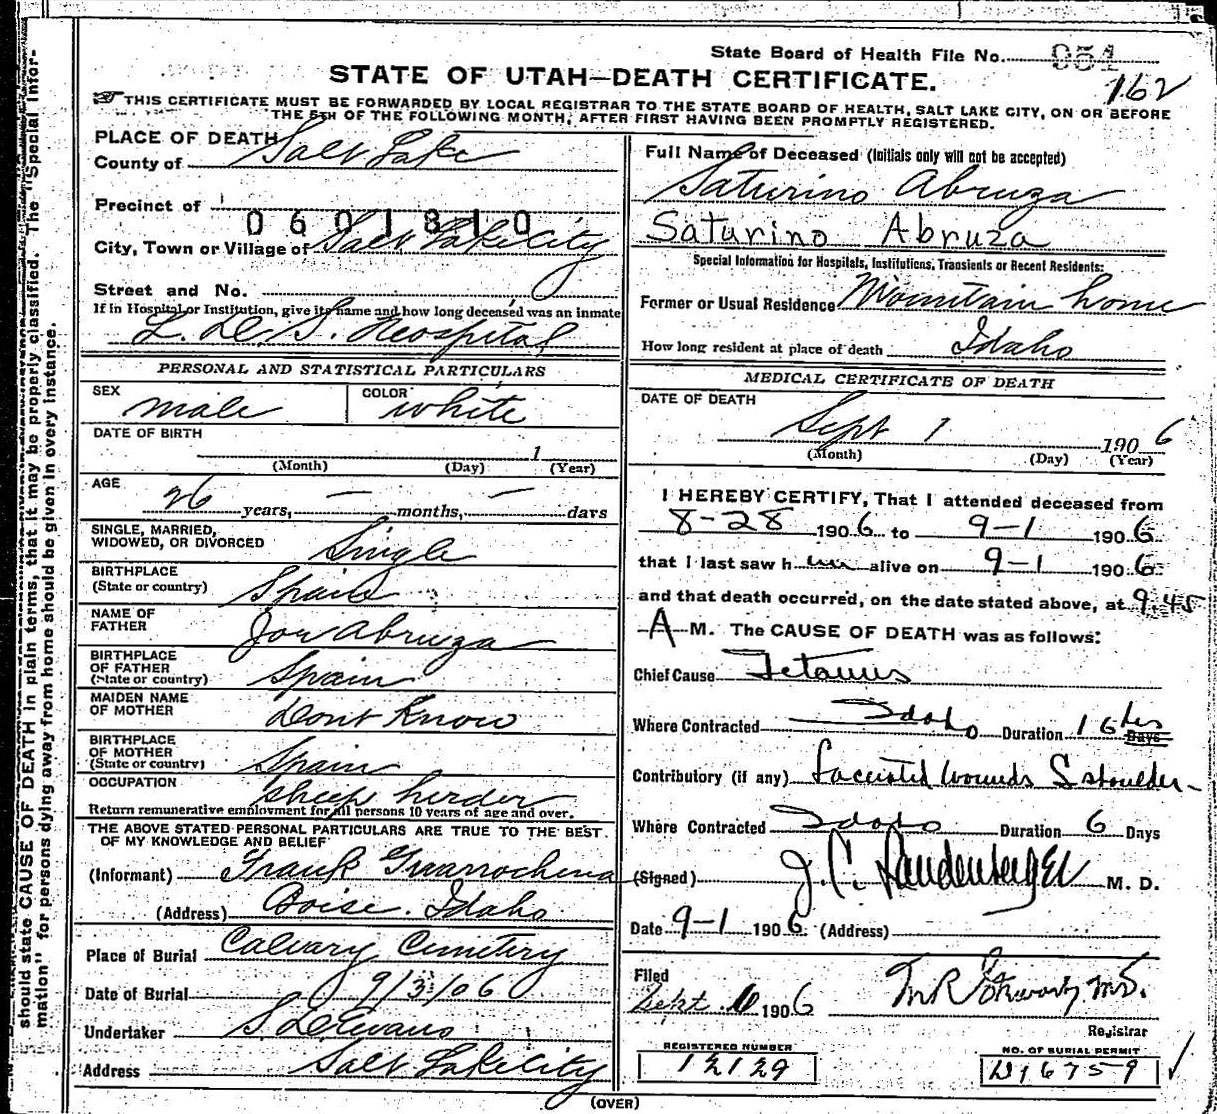 State Board of Health File No. 954
162
STATE OF UTAH—DEATH CERTIFICATE.
THIS CERTIFICATE MUST BE FORWARDED BY LOCAL REGISTRAR TO THE STATE BOARD OF HEALTH, SALT LAKE CITY, ON OR BEFORE
THE 5TH OF THE FOLLOWING MONTH, AFTER FIRST HAVING BEEN PROMPTLY REGISTERED.
should state CAUSE OF DEATH in plain terms, that it may be properly classified. The "Special Infor-
mation" for persons dying away from home should be given in every instance.
PLACE OF DEATH
County of Salt Lake
Precinct of
0601810
City, Town or Village of Salt Lake City
Street and No.
If in Hospital or Institution, give its name and how long deceased was an inmate
L. D. S. Hospital
PERSONAL AND STATISTICAL PARTICULARS
SEX male COLOR white
DATE OF BIRTH
1
(Month) (Day) (Year)
AGE
26 years, — months, — days
SINGLE, MARRIED,
WIDOWED, OR DIVORCED Single
BIRTHPLACE
(State or country) Spain
NAME OF
FATHER Jou Abruza
BIRTHPLACE
OF FATHER
(State or country) Spain
MAIDEN NAME
OF MOTHER Dont Know
BIRTHPLACE
OF MOTHER
(State or country) Spain
OCCUPATION sheep herder
Return remunerative employment for all persons 10 years of age and over.
THE ABOVE STATED PERSONAL PARTICULARS ARE TRUE TO THE BEST
OF MY KNOWLEDGE AND BELIEF
(Informant) Frank
(Address) Boise. Idaho
Place of Burial Calvary Cemetery
Date of Burial 9/3/06
Undertaker S D Evans
Address Salt Lake City
Full Name of Deceased (Initials only will not be accepted)
Saturino Abruza
Saturino Abruza
Special Information for Hospitals, Institutions, Transients or Recent Residents:
Former or Usual Residence Mountain home
How long resident at place of death Idaho
MEDICAL CERTIFICATE OF DEATH
DATE OF DEATH
Sept 1 1906
(Month) (Day) (Year)
I HEREBY CERTIFY, That I attended deceased from
8-28 1906 to 9-1 1906
that I last saw him alive on 9-1 1906
and that death occurred, on the date stated above, at 9.45
A M. The CAUSE OF DEATH was as follows:
Chief Cause Tetanus
Where Contracted Idaho Duration 16 hrs Days
Contributory (if any) Lacerated wounds S shoulder
Where Contracted Idaho Duration 6 Days
(Signed) J. C. Landenberger M. D.
Date 9-1 1906 (Address)
Filed
Sept. 1906
Registrar
REGISTERED NUMBER
12129
NO. OF BURIAL PERMIT
D16759
(OVER)